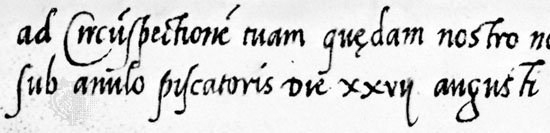 ad Circūspectionē tuam quędam nostro
sub anulo piscatoris die xxvij augusti